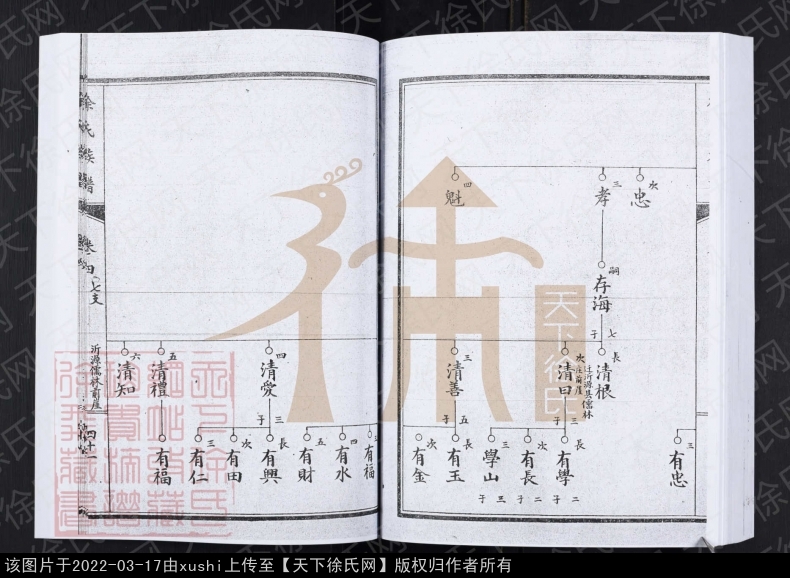 次
忠
三
孝
四
魁
嗣
存海
七子
長
清根
遷沂源县儒林
庄前崖
次
清田
三子
三
清善
五子
四
清愛
三子
五
清禮
六
清知
三
有忠
長
有學
二子
次
有長
二子
三
學山
三子
長
有玉
次
有金
三
有福
四
有水
五
有財
長
有興
次
有田
三
有仁
有福
徐氏族譜
卷四
七支
沂源儒林前崖
四十二
天下徐氏
该图片于2022-03-17由xushi上传至【天下徐氏网】版权归作者所有